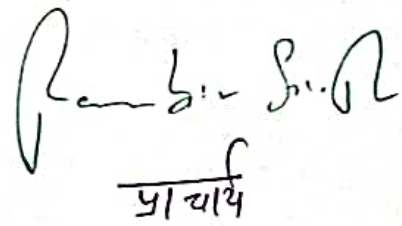 Ranbir Singh
प्राचार्य